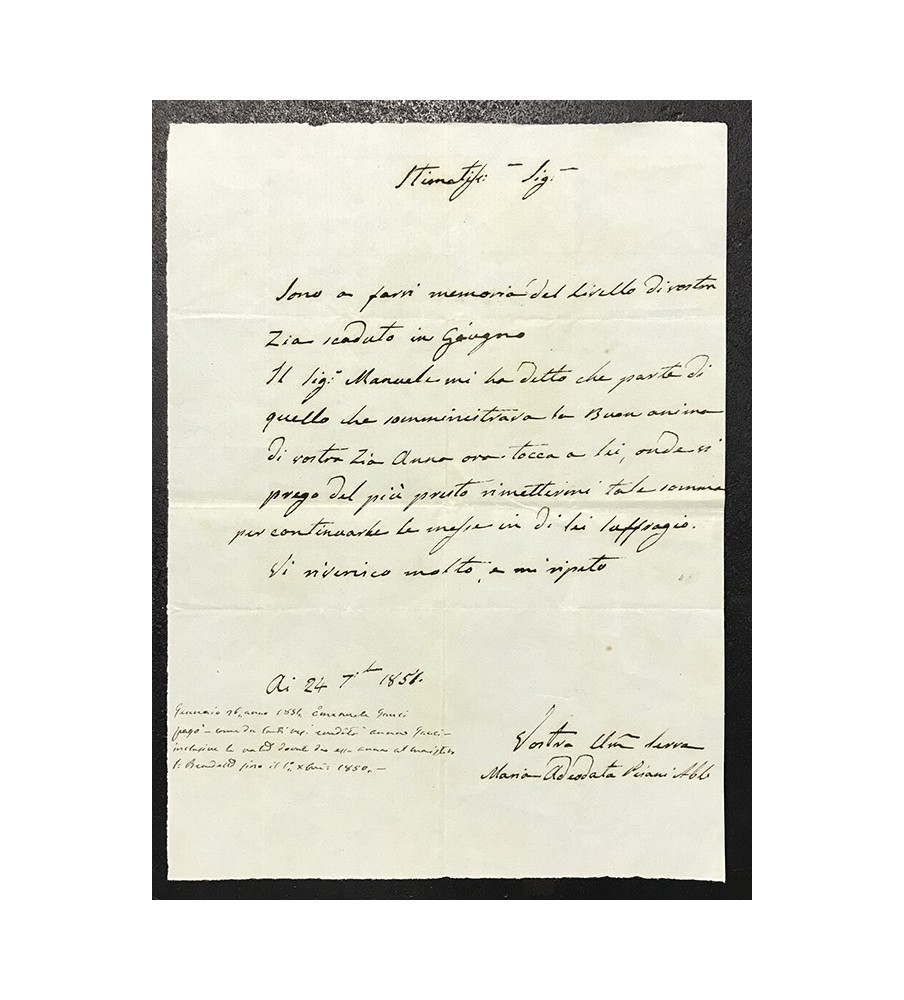 Stimatiss: Sig:
Sono a farvi memoria del livello di vostra
Zia scaduto in Giugno
Il Sig: Manuele mi ha detto che parte di
quello che somministrava la Buon anima
di vostra Zia Anna ora tocca a lei, onde vi
prego del più presto rimettermi tale somma
per continuarle le messe in di lei suffragio.
Vi riverisco molto, e mi ripeto
Ai 24 7bre 1851.
Gennaio 1851, Emanuele
pagò
inclusive le
fino il 1850,
Vostra Um serva
Maria Adeodata Pisani Abb